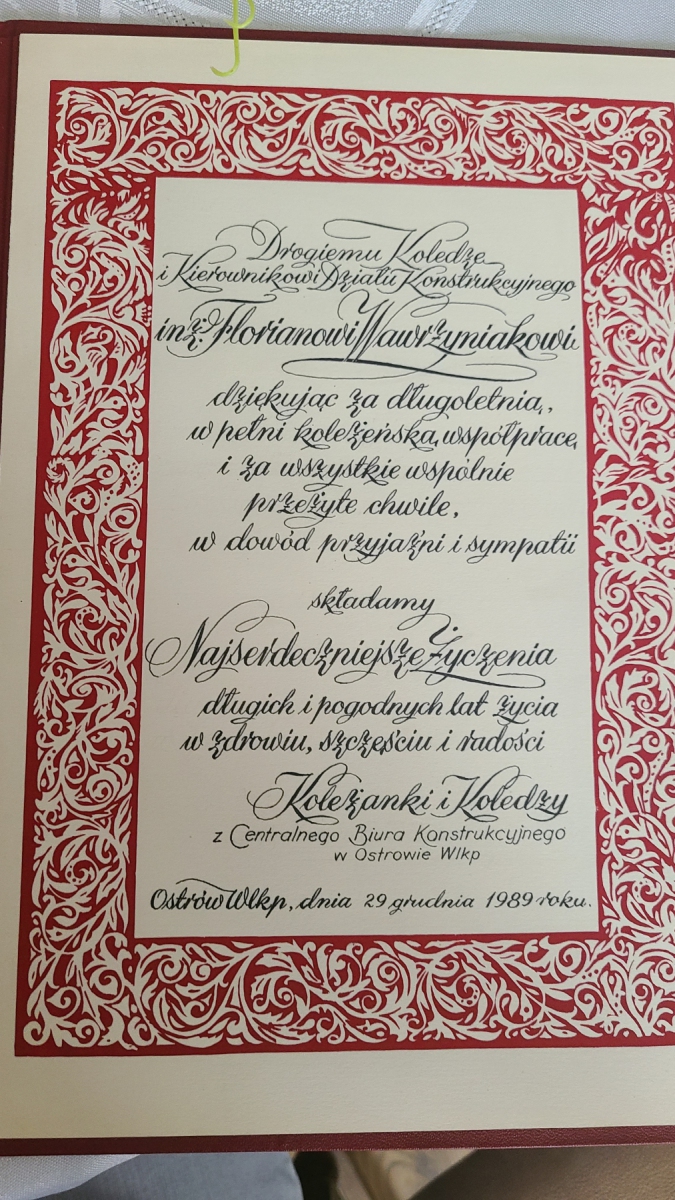 Drogiemu Koledze
i Kierownikowi Działu Konstrukcyjnego
inż. Florianowi Wawrzyniakowi
dziękując za długoletnią,
w pełni koleżeńską współpracę,
i za wszystkie wspólnie
przeżyte chwile,
w dowód przyjaźni i sympatii
składamy
Najserdeczniejsze Życzenia
długich i pogodnych lat życia
w zdrowiu, szczęściu i radości
Koleżanki i Koledzy
z Centralnego Biura Konstrukcyjnego
w Ostrowie Wlkp
Ostrów Wlkp, dnia 29 grudnia 1989 roku.